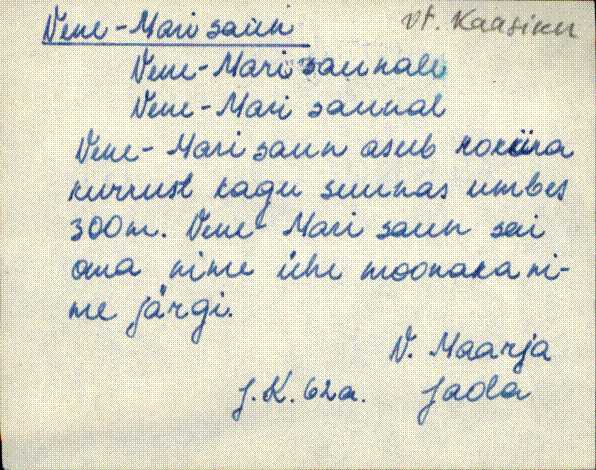 Vene-Mari saun
vt. Kaasiku
Vene-Mari saunale
Vene-Mari saunal
Vene-Mari saun asub
kurrust kagu suunas umbes
300m. Vene-Mari saun sai
oma nime ühe moonaka ni-
me järgi.
V. Maarja
J.K. 62a. Jaola